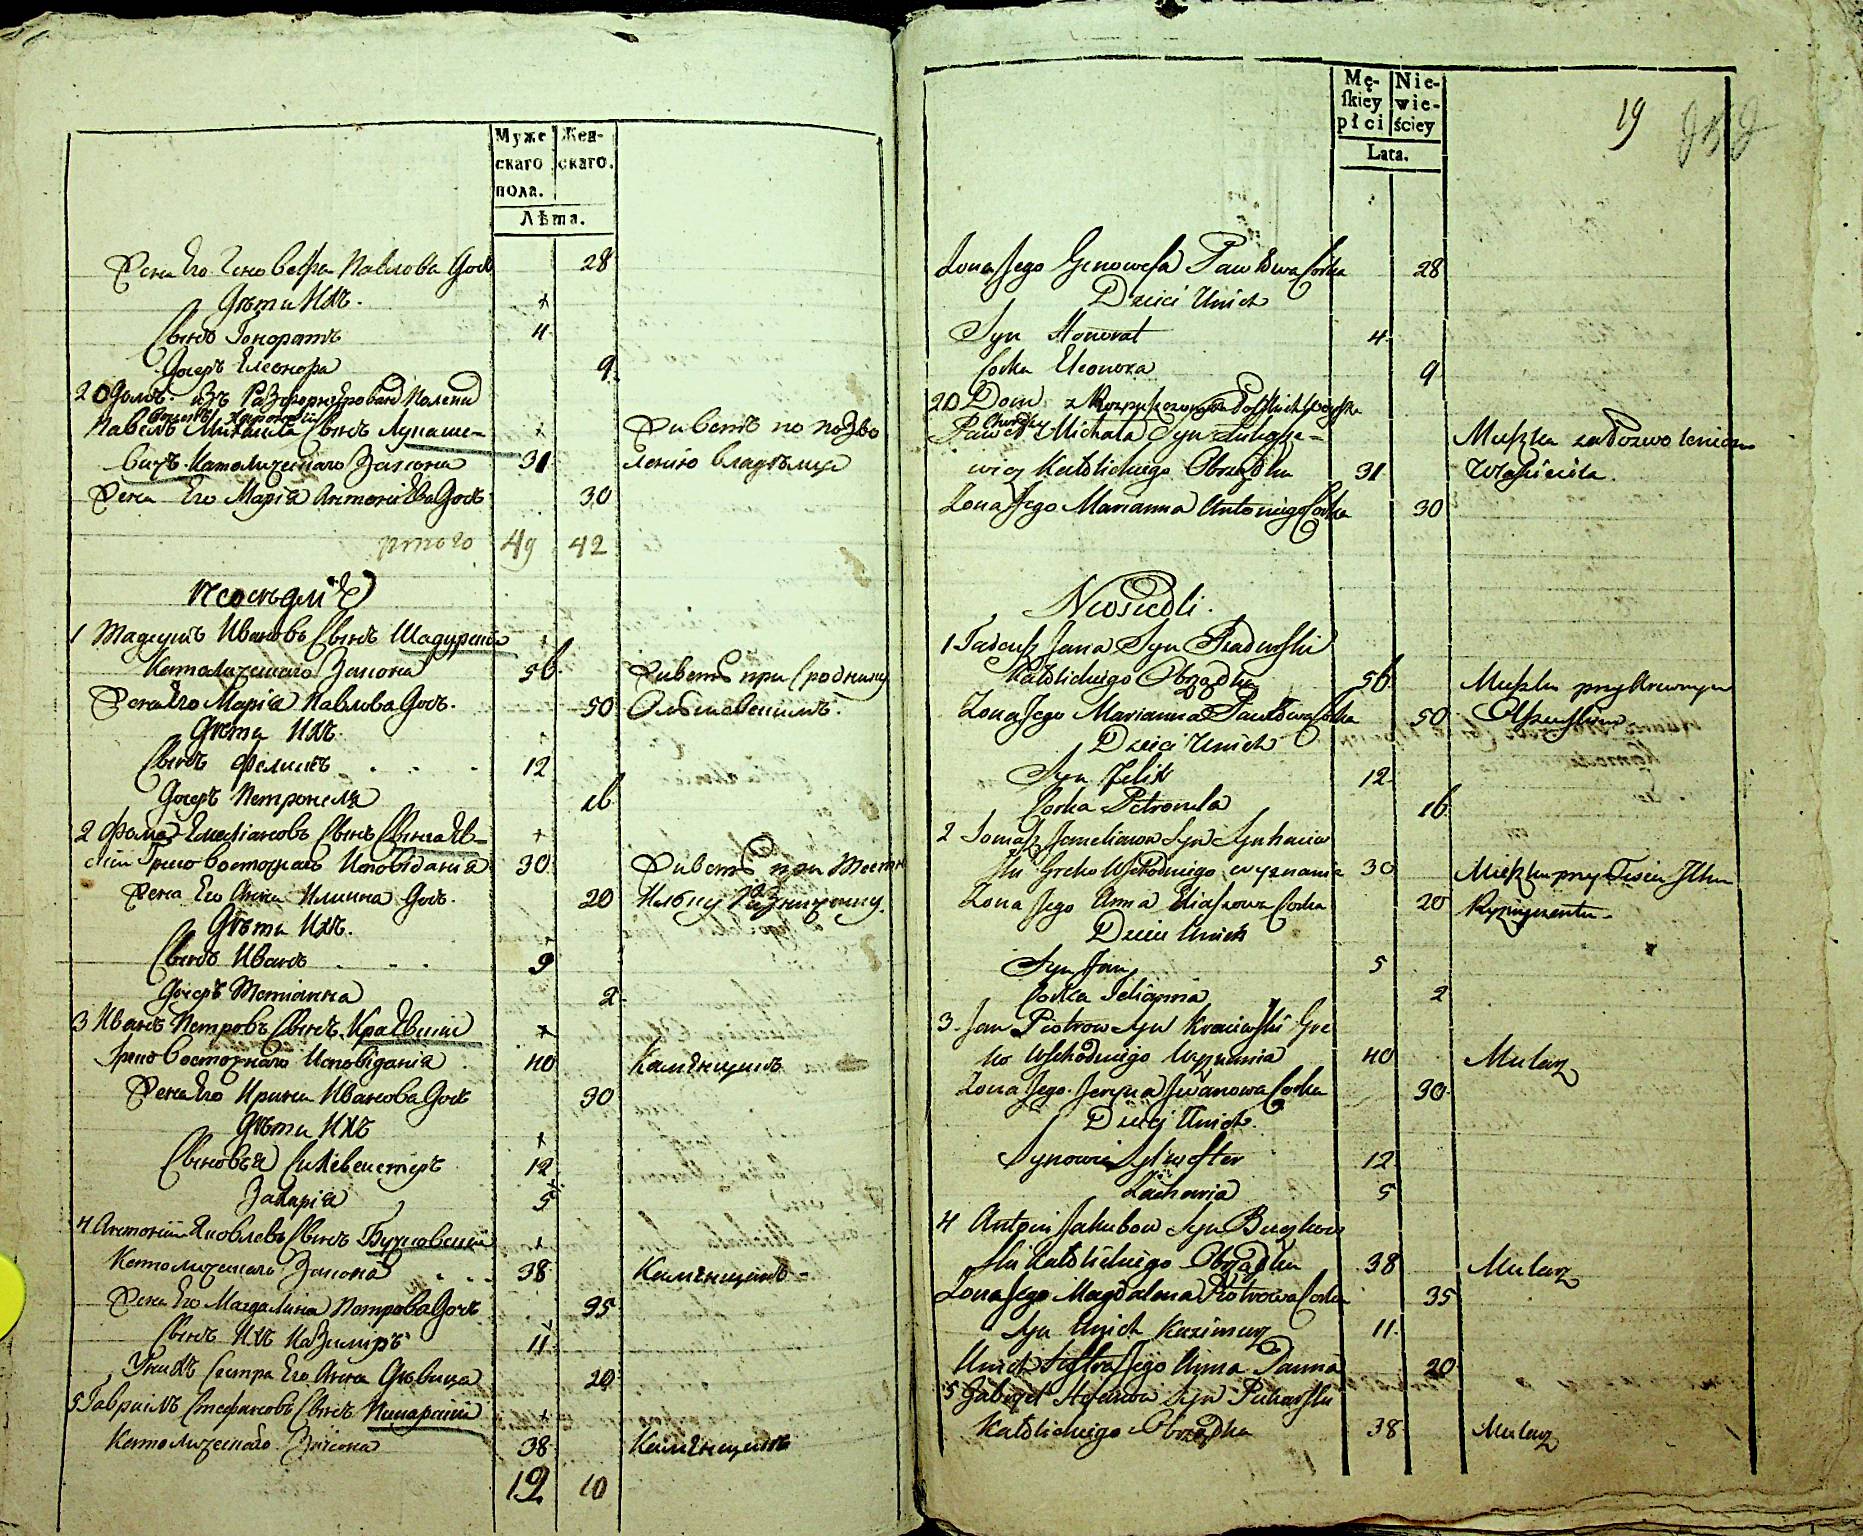 Муже
скаго
пола.
Жен-
скаго.
Лѣта.
Жена Его Геновефа Павлова Дочь 28
Дѣти Ихъ.
Сынъ Гоноратъ 4
Дочерь Елеонора 9
20 Домъ. изъ
Павелъ Михаила Сынъ Лукаше-
вичъ Католическаго Закона 31
Живетъ по позво
ленію владѣльца
Жена Его Марія Антоніева Дочь 30
итого 49 42
Неосѣдліе
1 Тадеушъ Ивановъ Сынъ Шадурскій
Католическаго Закона 56 Живетъ при Сроднику
Жена Его Марія Павлова Дочь. 50 Ольшевскимъ.
Дѣти Ихъ.
Сынъ Феликсъ 12
Дочерь Петронеля 16
2 Фома Емелiановъ Сынъ
скій Греко Восточнаго Исповѣданія 30 Живетъ при Тестю
Жена Его Анна Илiина Дочь. 20 Илiну
Дѣти Ихъ.
Сынъ Иванъ 9
Дочерь Тетіанна 2
3 Иванъ Петровъ Сынъ Краевскій
Греко Восточнаго Исповѣданія 40 Каменщикъ
Жена Его Ирина Иванова Дочь 30
Дѣти Ихъ
Сыновья Сильвестеръ 12
Захарія 5
4 Антоній Яковлевъ Сынъ Бучковскій
Католическаго Закона 38 Каменщикъ
Жена Его Магдалина Петрова Дочь 35
Сынъ Ихъ Казимиръ 11
У нихъ Сестра Его Анна Дѣвица 20
5 Гавріилъ Стефановъ Сынъ Пекарскій
Католическаго Закона 38 Каменщикъ
12 10
Mę-
skiey
płci
Nie-
wie-
ściey
Lata.
19
Żona Jego Genowefa Pawłowa Corka 28
Dzieci Unich
Syn Honorat 4
Corka Eleonora 9
20 Dom z
Paweł Michała Syn Łukasze-
wicz Katolickiego Obrządku 31
Mieszka za dozwoleniem
Właściciela.
Żona Jego Marianna Antoniego Corka 30
Nieosiedli.
1 Tadeusz Jana Syn Szadurski
Katolickiego Obrządku 56 Mieszka przy Krewnym
Żona Jego Marianna Pawłowa Corka 50 Olszewskim
Dzieci Unich
Syn Felix 12
Corka Petronela 16
2 Tomasz Jemelianow Syn
ski Greko Wschodniego wyznania 30 Mieszka przy Tesciu Ilku
Żona Jego Anna Eliaszowa Corka 20
Dzieci Unich
Syn Jan 5
Corka Tetianna 2
3 Jan Piotrow Syn Kraiewski Gre
ko Wschodniego Wyznania 40 Mularz
Żona Jego Jeryna Jwanowa Corka 30
Dzieci Unich.
Synowie Sylwester 12
Zacharia 5
4 Antoni Jakubow Syn Buczkow
ski Katolickiego Obrządku 38 Mularz
Żona Jego Magdalena Piotrowa Corka 35
Syn Unich Kazimierz 11
Unich Siostra Jego Anna Panna 20
5 Gabryel Stefanow Syn Piekarski
Katolickiego Obrządku 38 Mularz